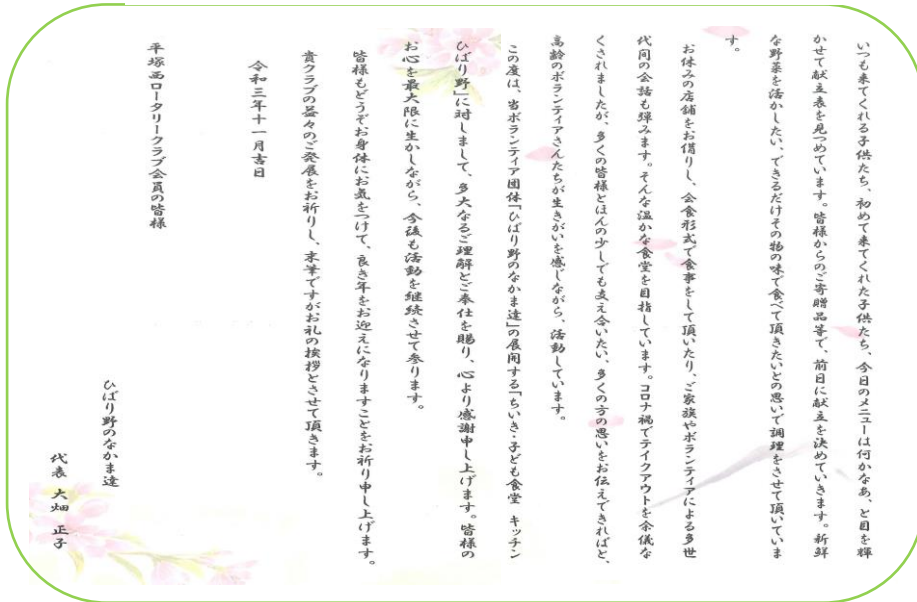 いつも来てくれる子供たち、初めて来てくれた子供たち、今日のメニューは何かなあ、と目を輝
かせて献立表を見つめています。皆様からのご寄贈品等で、前日に献立を決めていきます。新鮮
な野菜を活かしたい、できるだけその物の味で食べて頂きたいとの思いで調理をさせて頂いていま
す。
お休みの店舗をお借りし、会食形式で食事をして頂いたり、ご家族やボランティアによる多世
代間の会話も弾みます。そんな温かな食堂を目指しています。コロナ禍でテイクアウトを余儀な
くされましたが、多くの皆様とほんの少しでも支え合いたい、多くの方の思いをお伝えできればと、
高齢のボランティアさんたちが生きがいを感じながら、活動しています。
この度は、当ボランティア団体「ひばり野のなかま達」の展開する「ちいき・子ども食堂 キッチン
ひばり野」に対しまして、多大なるご理解とご奉仕を賜り、心より感謝申し上げます。皆様の
お心を最大限に生かしながら、今後も活動を継続させて参ります。
皆様もどうぞお身体にお気をつけて、良き年をお迎えになりますことをお祈り申し上げます。
貴クラブの益々のご発展をお祈りし、末筆ですがお礼の挨拶とさせて頂きます。
令和三年十一月吉日
平塚西ロータリークラブ会員の皆様
ひばり野のなかま達
代表 大畑 正子